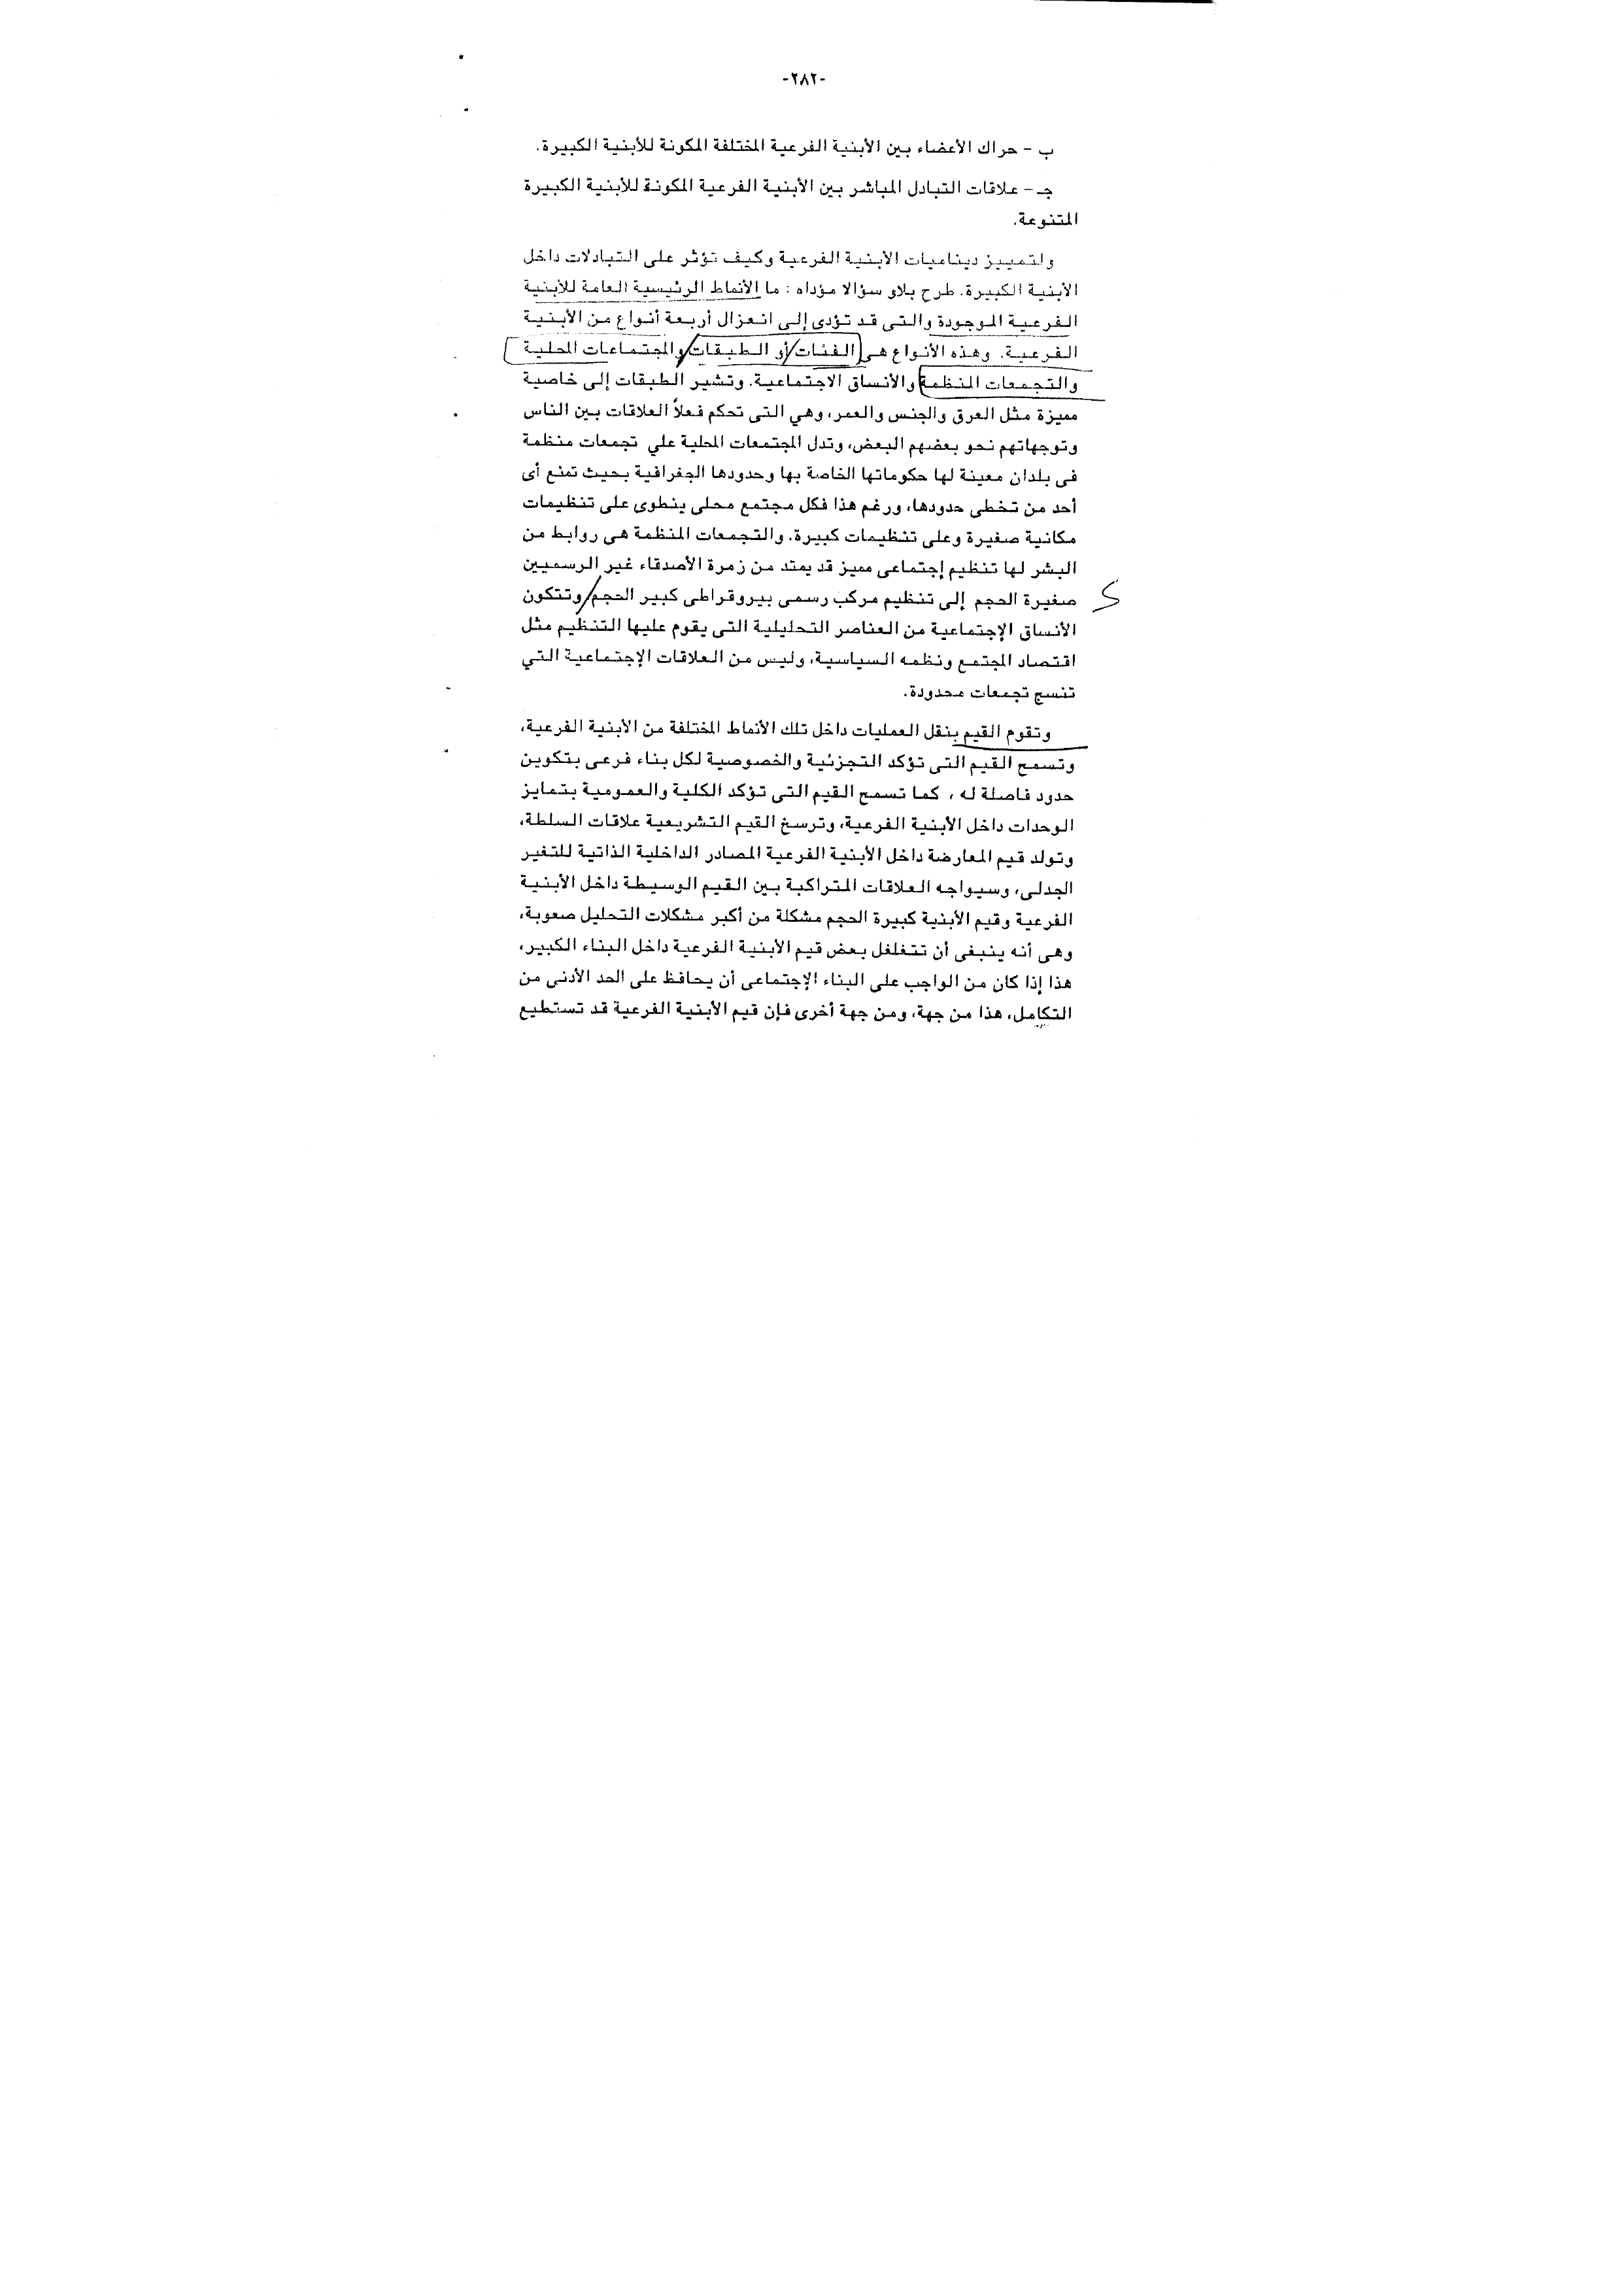 -٢٨٢-
ب - حراك الأعضاء بين الأبنية الفرعية المختلفة المكونة للأبنية الكبيرة.
جـ - علاقات التبادل المباشر بين الأبنية الفرعية المكونة للأبنية الكبيرة
المتنوعة.
ولتمييز ديناميات الأبنية الفرعية وكيف تؤثر على التبادلات داخل
الأبنية الكبيرة. طرح بلاو سؤالا مؤداه : ما الأنماط الرئيسية العامة للأبنية
الفرعية الموجودة والتى قد تؤدى إلى انعزال أربعة أنواع من الأبنية
الفرعية. وهذه الأنواع هى الفئات أو الطبقات والمجتماعات المحلية
والتجمعات المنظمة والأنساق الاجتماعية. وتشير الطبقات إلى خاصية
مميزة مثل العرق والجنس والعمر، وهي التى تحكم فعلاً العلاقات بين الناس
وتوجهاتهم نحو بعضهم البعض، وتدل المجتمعات المحلية علي تجمعات منظمة
فى بلدان معينة لها حكوماتها الخاصة بها وحدودها الجغرافية بحيث تمنع أى
أحد من تخطى حدودها، ورغم هذا فكل مجتمع محلى ينطوى على تنظيمات
مكانية صغيرة وعلى تنظيمات كبيرة. والتجمعات المنظمة هى روابط من
البشر لها تنظيم إجتماعى مميز قد يمتد من زمرة الأصدقاء غير الرسميين
صغيرة الحجم إلى تنظيم مركب رسمى بيروقراطى كبير الحجم/وتتكون
الأنساق الإجتماعية من العناصر التحليلية التى يقوم عليها التنظيم مثل
اقتصاد المجتمع ونظمه السياسية، وليس من العلاقات الإجتماعية التي
تنسج تجمعات محدودة.
وتقوم القيم بنقل العمليات داخل تلك الأنماط المختلفة من الأبنية الفرعية،
وتسمح القيم التى تؤكد التجزئية والخصوصية لكل بناء فرعى بتكوين
حدود فاصلة له ، كما تسمح القيم التى تؤكد الكلية والعمومية بتمايز
الوحدات داخل الأبنية الفرعية، وترسخ القيم التشريعية علاقات السلطة،
وتولد قيم المعارضة داخل الأبنية الفرعية المصادر الداخلية الذاتية للتغير
الجدلى، وسيواجه العلاقات المتراكبة بين القيم الوسيطة داخل الأبنية
الفرعية وقيم الأبنية كبيرة الحجم مشكلة من أكبر مشكلات التحليل صعوبة،
وهى أنه ينبغى أن تتغلغل بعض قيم الأبنية الفرعية داخل البناء الكبير،
هذا إذا كان من الواجب على البناء الإجتماعى أن يحافظ على الحد الأدنى من
التكامل، هذا من جهة، ومن جهة أخرى فإن قيم الأبنية الفرعية قد تستطيع